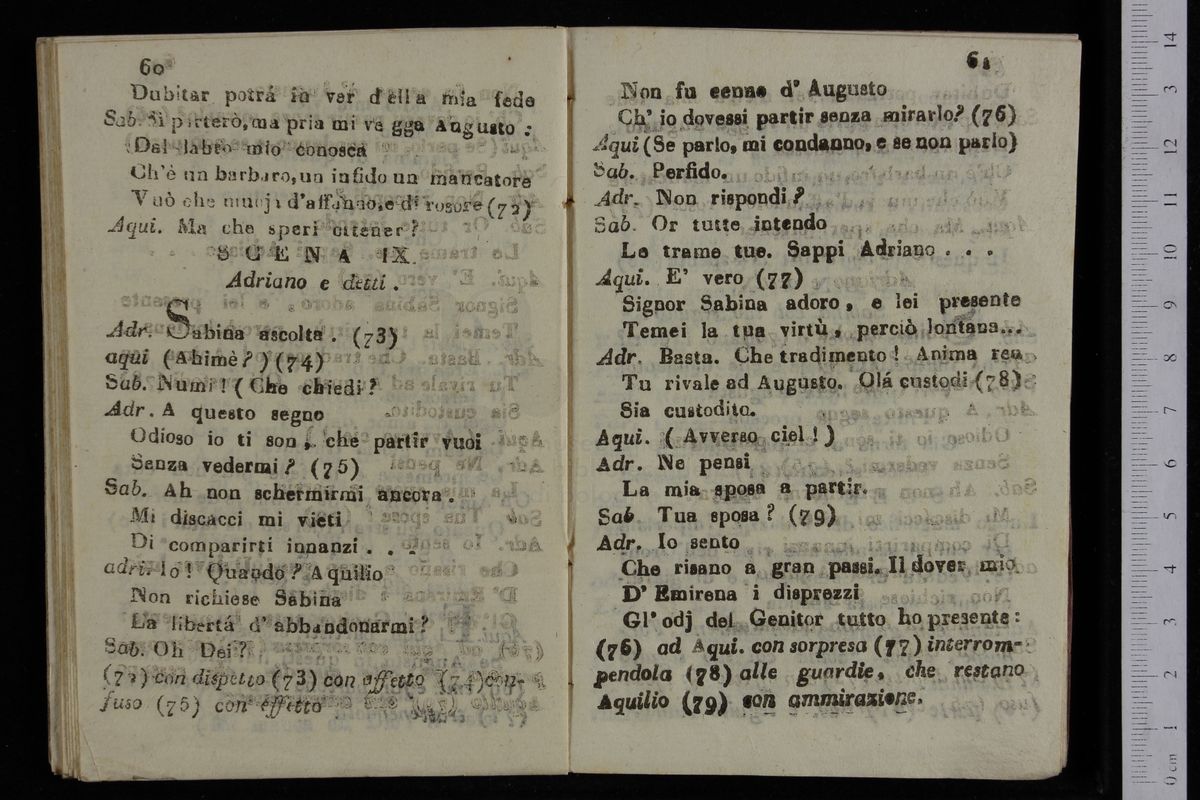 60
Dubitar potrá in ver d'ella mia fede
Sab. Si pirterò, ma pria mi ve gga Augusto :
Dal labro mio conosca
Ch'è un barbaro, un infido un mancatore
Vuò che muoji d'affanno, e di rosore (72)
Aqui. Ma che speri ottener?
SCENA IX.
Adriano e detti.
Adr. Sabina ascolta. (73)
aqui (Ahimè?) (74)
Sab. Numi! (Che chiedi?
Adr. A questo segno
Odioso io ti son, che partir vuoi
Senza vedermi? (75)
Sab. Ah non schermirmi ancora.
Mi discacci mi vieti
Di comparirti innanzi . . .
adri. Io! Quando? Aquilio
Non richiese Sabina
La libertá d'abbandonarmi?
Sab. Oh Dei?
(72) con dispetto (73) con affetto (74) con-
fuso (75) con effetto
61
Non fu cenno d' Augusto
Ch' io dovessi partir senza mirarlo? (76)
Aqui (Se parlo, mi condanno, e se non parlo)
Sab. Perfido.
Adr. Non rispondi?
Sab. Or tutte intendo
Le trame tue. Sappi Adriano . . .
Aqui. E' vero (77)
Signor Sabina adoro, e lei presente
Temei la tua virtù, perciò lontana...
Adr. Basta. Che tradimento! Anima rea
Tu rivale ad Augusto. Olá custodi (78)
Sia custodito.
Aqui. (Avverso ciel!)
Adr. Ne pensi
La mia sposa a partir.
Sab Tua sposa? (79)
Adr. Io sento
Che risano a gran passi. Il dover mio
D' Emirena i disprezzi
Gl' odj del Genitor tutto ho presente:
(76) ad Aqui. con sorpresa (77) interrom-
pendola (78) alle guardie, che restano
Aquilio (79) con ammirazione.
14
13
12
11
10
9
8
7
6
5
4
3
2
1
0 cm